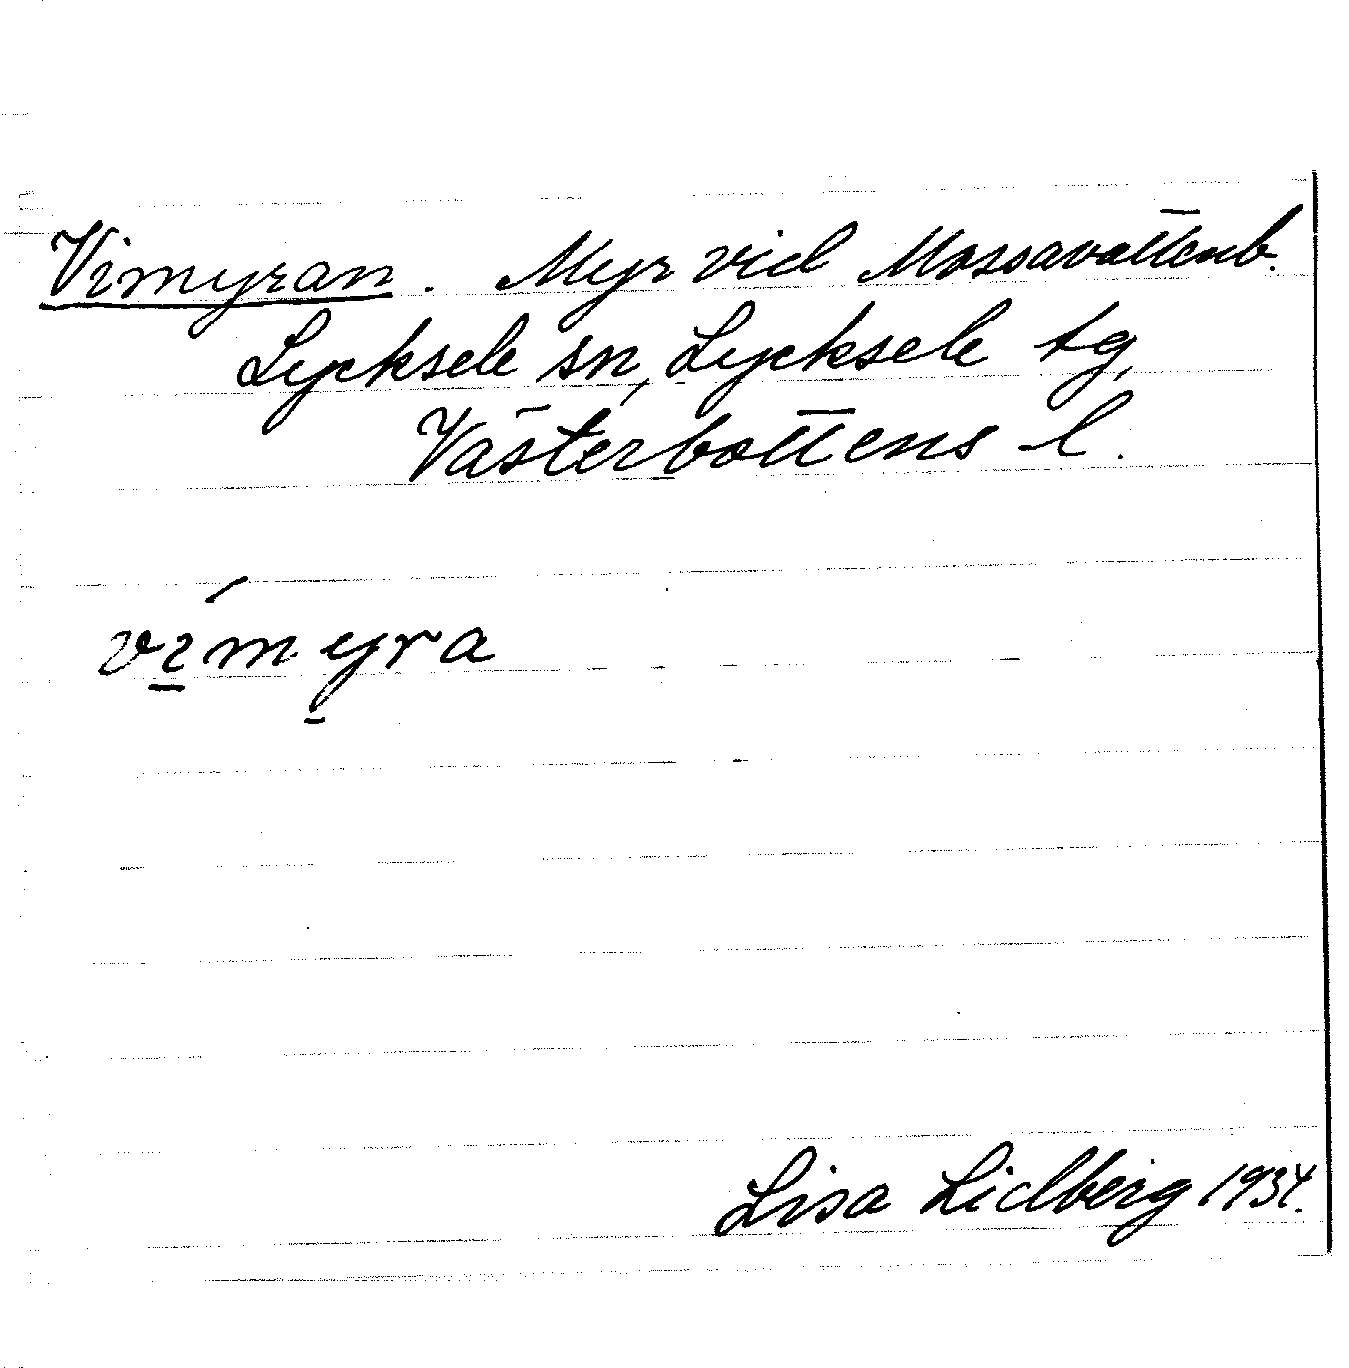 Vimyran. Myr vid Mossavattenb.
Lycksele sn, Lycksele tg,
Västerbottens l.
vímyra
Lisa Lidberg 1934.